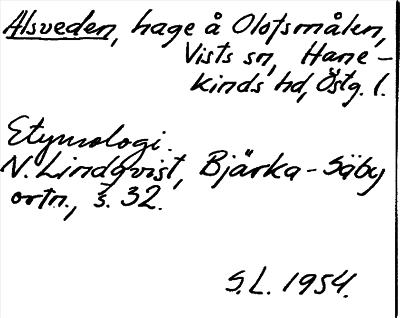 Alsveden, hage å Olofsmålen,
Vists sn, Hane-
kinds hd, Östg. l.
Etymologi.
N. Lindqvist, Bjärka-Säby
ortn., s. 32.
S.L. 1954.